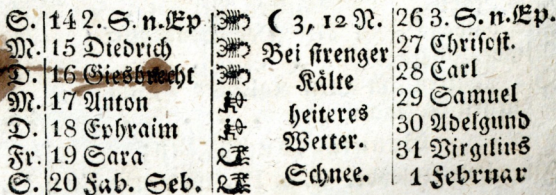 S. 14 2. S. n. Ep ☾ 3, 12 N. 26 3. S. n. Ep.
M. 15 Diedrich Bei strenger 27 Chrisost.
D. 16 Giesbrecht Kälte 28 Carl
M. 17 Anton heiteres 29 Samuel
D. 18 Ephraim Wetter. 30 Adelgund
Fr. 19 Sara 31 Virgilius
S. 20 Fab. Seb. Schnee. 1 Februar